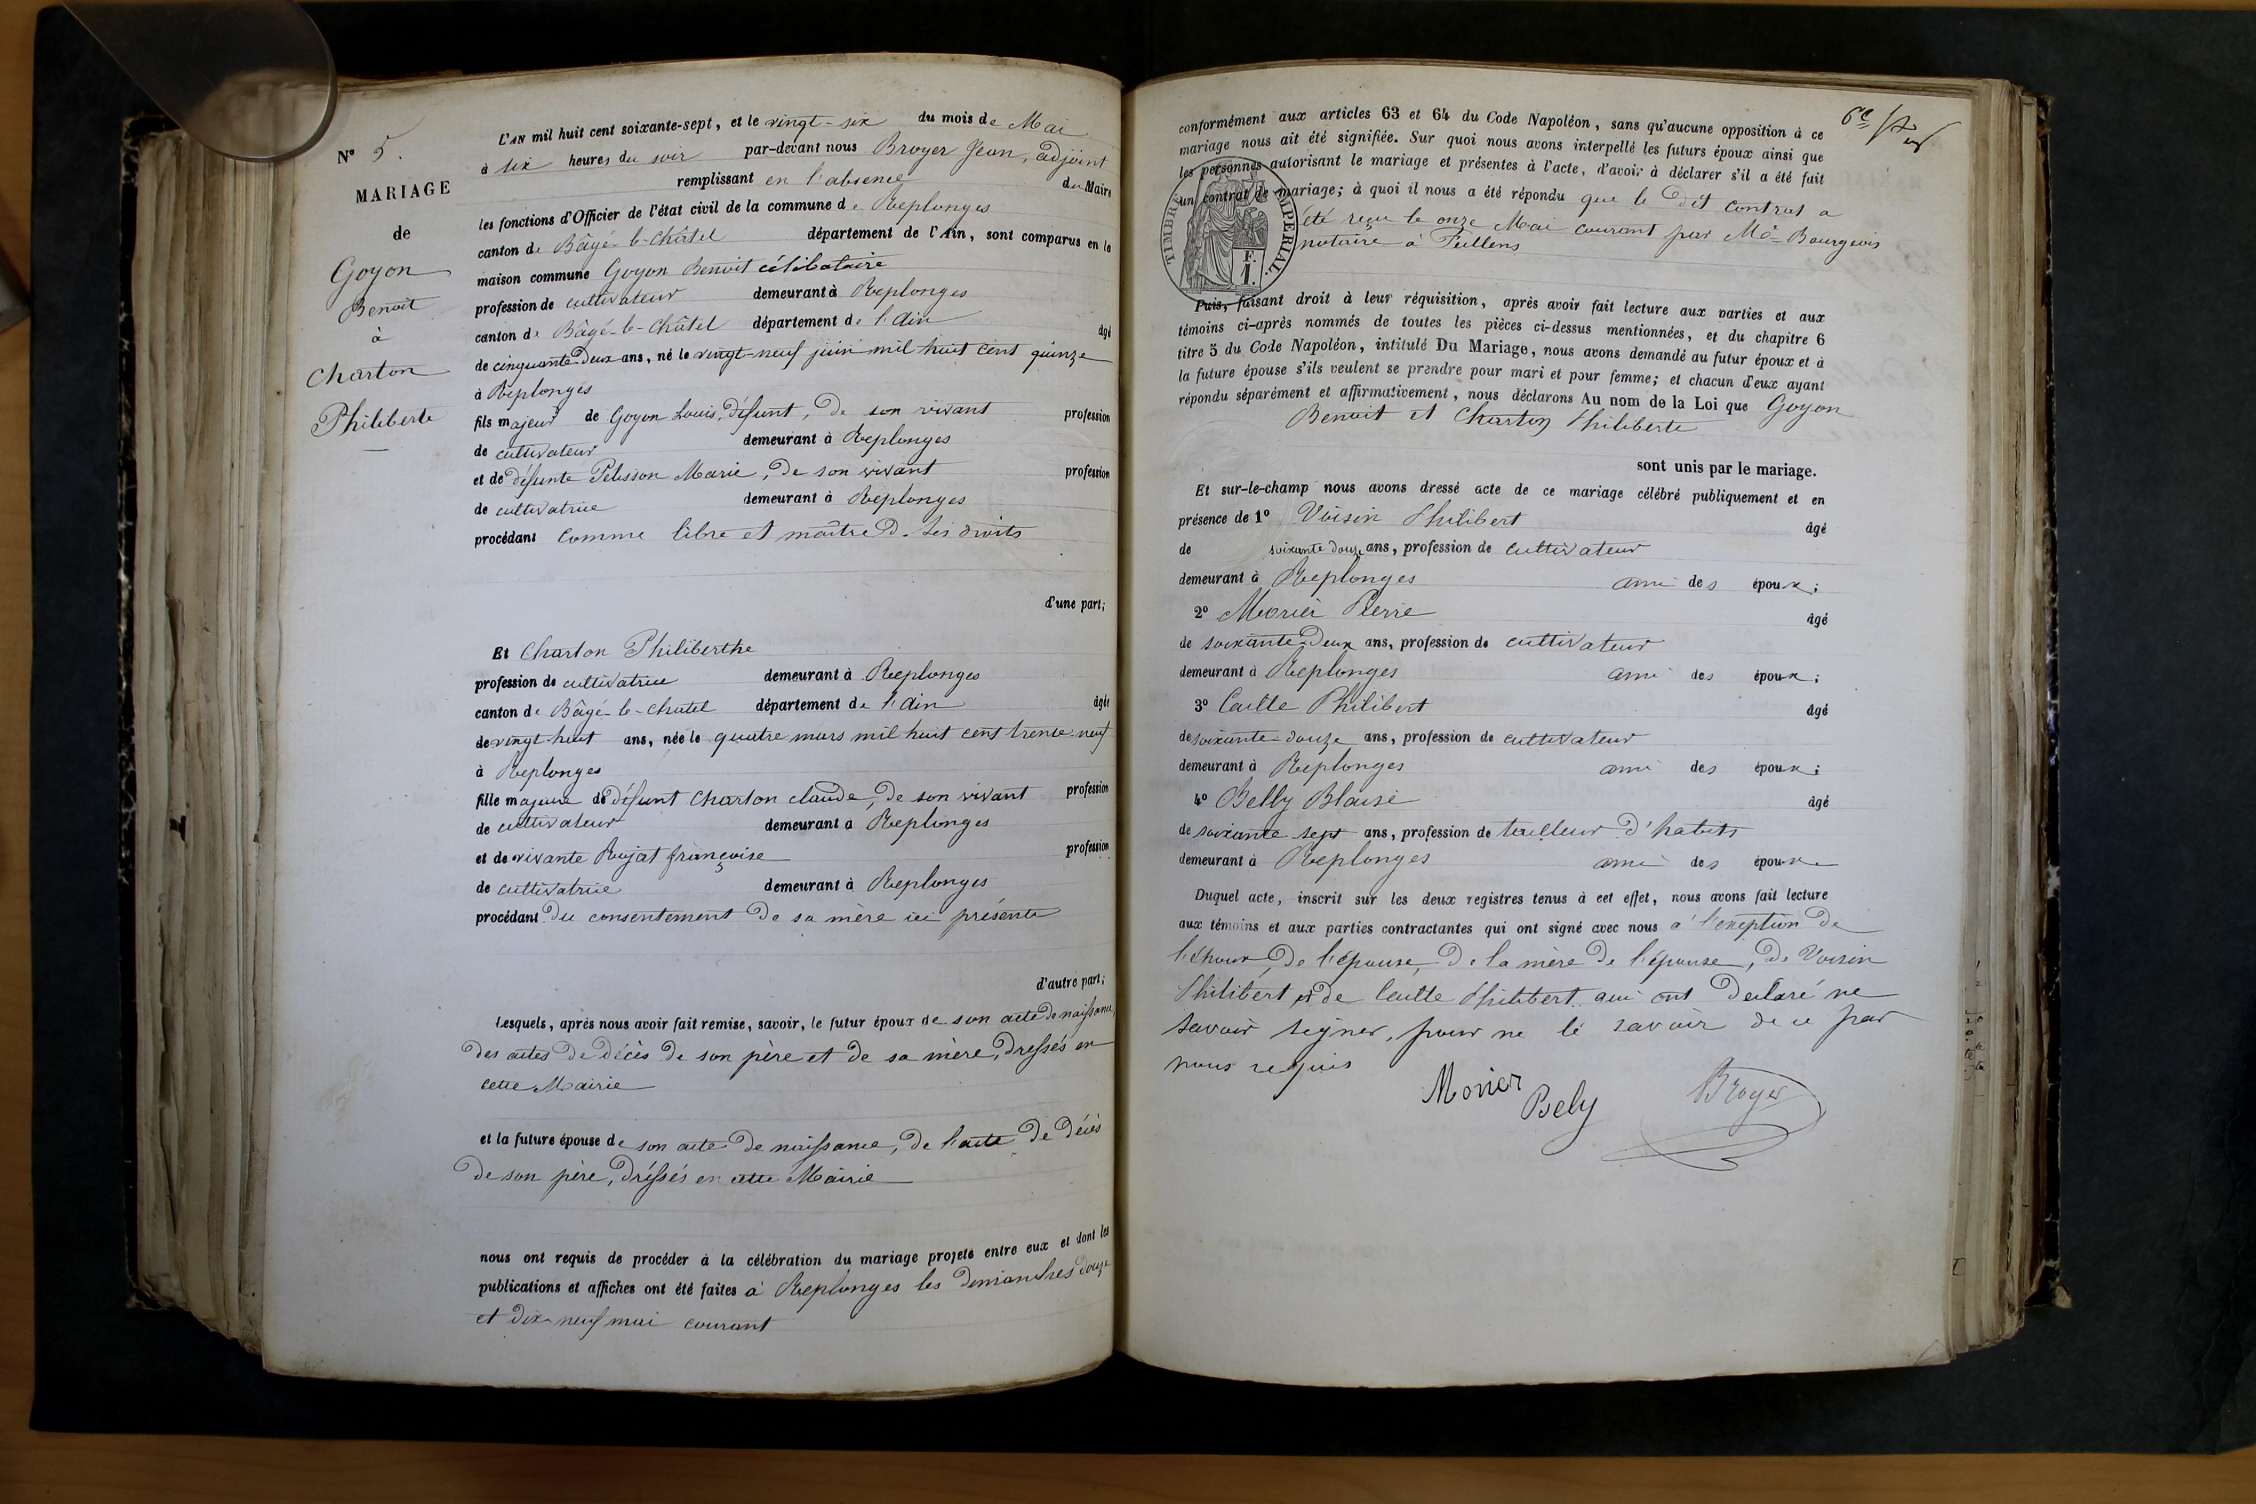 N° 5.
MARIAGE
de
Goyon
Benoit
à
Charton
Philiberte
L'AN mil huit cent soixante-sept, et le vingt-six du mois de Mai
à six heures du soir par-devant nous Broyer Jean, adjoint
remplissant en l'absence du Maire
les fonctions d'Officier de l'état civil de la commune de Replonges
canton de Bâgé-le-Châtel département de l'Ain, sont comparus en la
maison commune Goyon Benoit célibataire
profession de cultivateur demeurant à Replonges
canton de Bâgé-le-Châtel département de l'Ain âgé
de cinquante-deux ans, né le vingt-neuf juin mil huit cent quinze
à Replonges
fils majeur de Goyon Louis, défunt, de son vivant profession
de cultivateur demeurant à Replonges
et de défunte Pelisson Marie, de son vivant profession
de cultivatrice demeurant à Replonges
procédant comme libre et maître de ses droits
d'une part;
Et Charton Philiberthe
profession de cultivatrice demeurant à Replonges
canton de Bâgé-le-Chatel département de l'Ain âgée
de vingt-huit ans, née le quatre mars mil huit cent trente-neuf
à Replonges
fille majeure de défunt Charton claude, de son vivant profession
de cultivateur demeurant à Replonges
et de vivante Rujat françoise profession
de cultivatrice demeurant à Replonges
procédant du consentement de sa mère ici présente
d'autre part;
Lesquels, après nous avoir fait remise, savoir, le futur époux de son acte de naissance,
des actes de décès de son père et de sa mère, dressés en
cette Mairie
et la future épouse de son acte de naissance, de l'acte de décès
de son père, dréssés en cette Mairie
nous ont requis de procéder à la célébration du mariage projeté entre eux et dont les
publications et affiches ont été faites à Replonges les dimanches douze
et dix-neuf mai courant
6e
conformément aux articles 63 et 64 du Code Napoléon, sans qu'aucune opposition à ce
mariage nous ait été signifiée. Sur quoi nous avons interpellé les futurs époux ainsi que
les personnes autorisant le mariage et présentes à l'acte, d'avoir à déclarer s'il a été fait
un contrat de mariage; à quoi il nous a été répondu que le dit contrat a
été reçu le onze Mai courant par Me Bourgeois
notaire à Feillens
TIMBRE IMPERIAL.
F.
1.
Puis, faisant droit à leur réquisition, après avoir fait lecture aux parties et aux
témoins ci-après nommés de toutes les pièces ci-dessus mentionnées, et du chapitre 6
titre 5 du Code Napoléon, intitulé Du Mariage, nous avons demandé au futur époux et à
la future épouse s'ils veulent se prendre pour mari et pour femme; et chacun d'eux ayant
répondu séparément et affirmativement, nous déclarons Au nom de la Loi que Goyon
Benoit et Charton Philiberte
sont unis par le mariage.
Et sur-le-champ nous avons dressé acte de ce mariage célébré publiquement et en
présence de 1° Voisin Philibert âgé
de soixante douze ans, profession de cultivateur
demeurant à Replonges ami des époux;
2° Morier Pierre âgé
de soixante-deux ans, profession de cultivateur
demeurant à Replonges ami des époux;
3° Caille Philibert âgé
de soixante-douze ans, profession de cultivateur
demeurant à Replonges ami des époux;
4° Belly Blaise âgé
de soixante sept ans, profession de tailleur d'habits
demeurant à Replonges ami des époux
Duquel acte, inscrit sur les deux registres tenus à cet effet, nous avons fait lecture
aux témoins et aux parties contractantes qui ont signé avec nous à l'exeption de
l'époux, de l'épouse, de la mère de l'épouse, de Voisin
Philibert et de Caille Philibert qui ont déclaré ne
savoir signer, pour ne le savoir de ce par
nous requis
Morier
Bely
Broyer